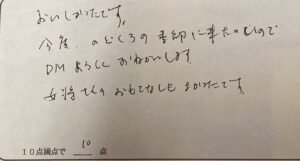 おいしかったです。
今度、のどくろの季節に来たいので
DMよろしくおねがいします。
女将さんのおもてなしもよかったです。
10点満点で 10 点